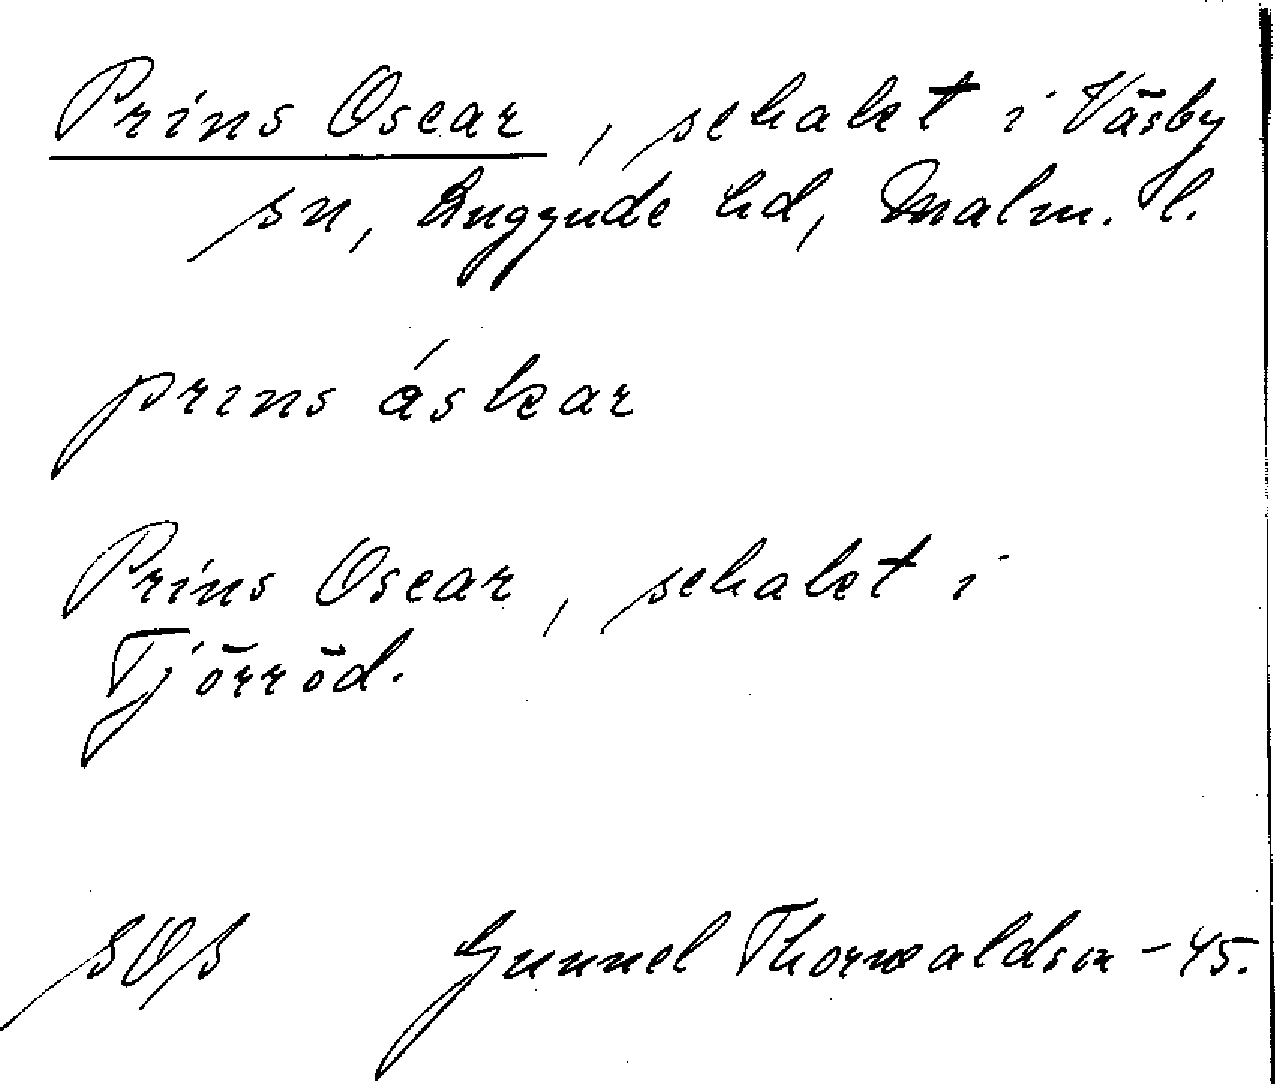 Prins Oscar, schakt i Väsby
sn, Luggude hd, Malm. l.
prins áskar
Prins Oscar, schakt i
Tjörröd.
Gunnel Thorwaldson -45.